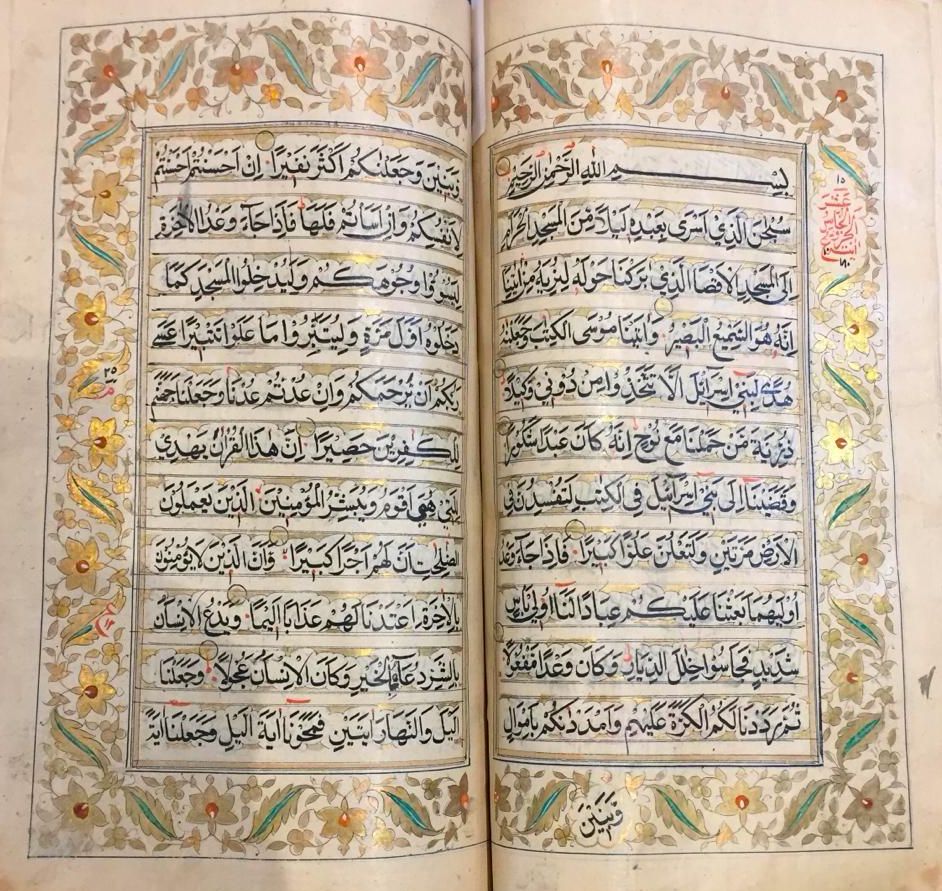 بِسْمِ اللهِ الرَّحْمٰنِ الرَّحِيْمِ
سُبْحٰنَ الَّذِيْ اَسْرٰى بِعَبْدِهٖ لَيْلًا مِّنَ الْمَسْجِدِ الْحَرَامِ
اِلَى الْمَسْجِدِ الْاَقْصَا الَّذِيْ بٰرَكْنَا حَوْلَهٗ لِنُرِيَهٗ مِنْ اٰيٰتِنَا
اِنَّهٗ هُوَ السَّمِيْعُ الْبَصِيْرُ وَاٰتَيْنَا مُوْسَى الْكِتٰبَ وَجَعَلْنٰهُ
هُدًى لِّبَنِيْ اِسْرَآئِيْلَ اَلَّا تَتَّخِذُوْا مِنْ دُوْنِيْ وَكِيْلًا
ذُرِّيَّةَ مَنْ حَمَلْنَا مَعَ نُوْحٍ اِنَّهٗ كَانَ عَبْدًا شَكُوْرًا
وَقَضَيْنَا اِلٰى بَنِيْ اِسْرَآئِيْلَ فِي الْكِتٰبِ لَتُفْسِدُنَّ فِي
الْاَرْضِ مَرَّتَيْنِ وَلَتَعْلُنَّ عُلُوًّا كَبِيْرًا فَاِذَا جَآءَ وَعْدُ
اُوْلٰىهُمَا بَعَثْنَا عَلَيْكُمْ عِبَادًا لَّنَا اُولِيْ بَاْسٍ
شَدِيْدٍ فَجَاسُوْا خِلٰلَ الدِّيَارِ وَكَانَ وَعْدًا مَّفْعُوْلًا
ثُمَّ رَدَدْنَا لَكُمُ الْكَرَّةَ عَلَيْهِمْ وَاَمْدَدْنٰكُمْ بِاَمْوَالٍ
وَّبَنِيْنَ
١٥
وَّبَنِيْنَ وَجَعَلْنٰكُمْ اَكْثَرَ نَفِيْرًا اِنْ اَحْسَنْتُمْ اَحْسَنْتُمْ
لِاَنْفُسِكُمْ وَاِنْ اَسَاْتُمْ فَلَهَا فَاِذَا جَآءَ وَعْدُ الْاٰخِرَةِ
لِيَسُوْٓءٗا وُجُوْهَكُمْ وَلِيَدْخُلُوا الْمَسْجِدَ كَمَا
دَخَلُوْهُ اَوَّلَ مَرَّةٍ وَّلِيُتَبِّرُوْا مَا عَلَوْا تَتْبِيْرًا عَسٰى
رَبُّكُمْ اَنْ يَّرْحَمَكُمْ وَاِنْ عُدْتُّمْ عُدْنَا وَجَعَلْنَا جَهَنَّمَ
لِلْكٰفِرِيْنَ حَصِيْرًا اِنَّ هٰذَا الْقُرْاٰنَ يَهْدِيْ
لِلَّتِيْ هِيَ اَقْوَمُ وَيُبَشِّرُ الْمُؤْمِنِيْنَ الَّذِيْنَ يَعْمَلُوْنَ
الصّٰلِحٰتِ اَنَّ لَهُمْ اَجْرًا كَبِيْرًا وَّاَنَّ الَّذِيْنَ لَا يُؤْمِنُوْنَ
بِالْاٰخِرَةِ اَعْتَدْنَا لَهُمْ عَذَابًا اَلِيْمًا وَيَدْعُ الْاِنْسَانُ
بِالشَّرِّ دُعَآءَهٗ بِالْخَيْرِ وَكَانَ الْاِنْسَانُ عَجُوْلًا وَجَعَلْنَا
الَّيْلَ وَالنَّهَارَ اٰيَتَيْنِ فَمَحَوْنَا اٰيَةَ الَّيْلِ وَجَعَلْنَا اٰيَةَ